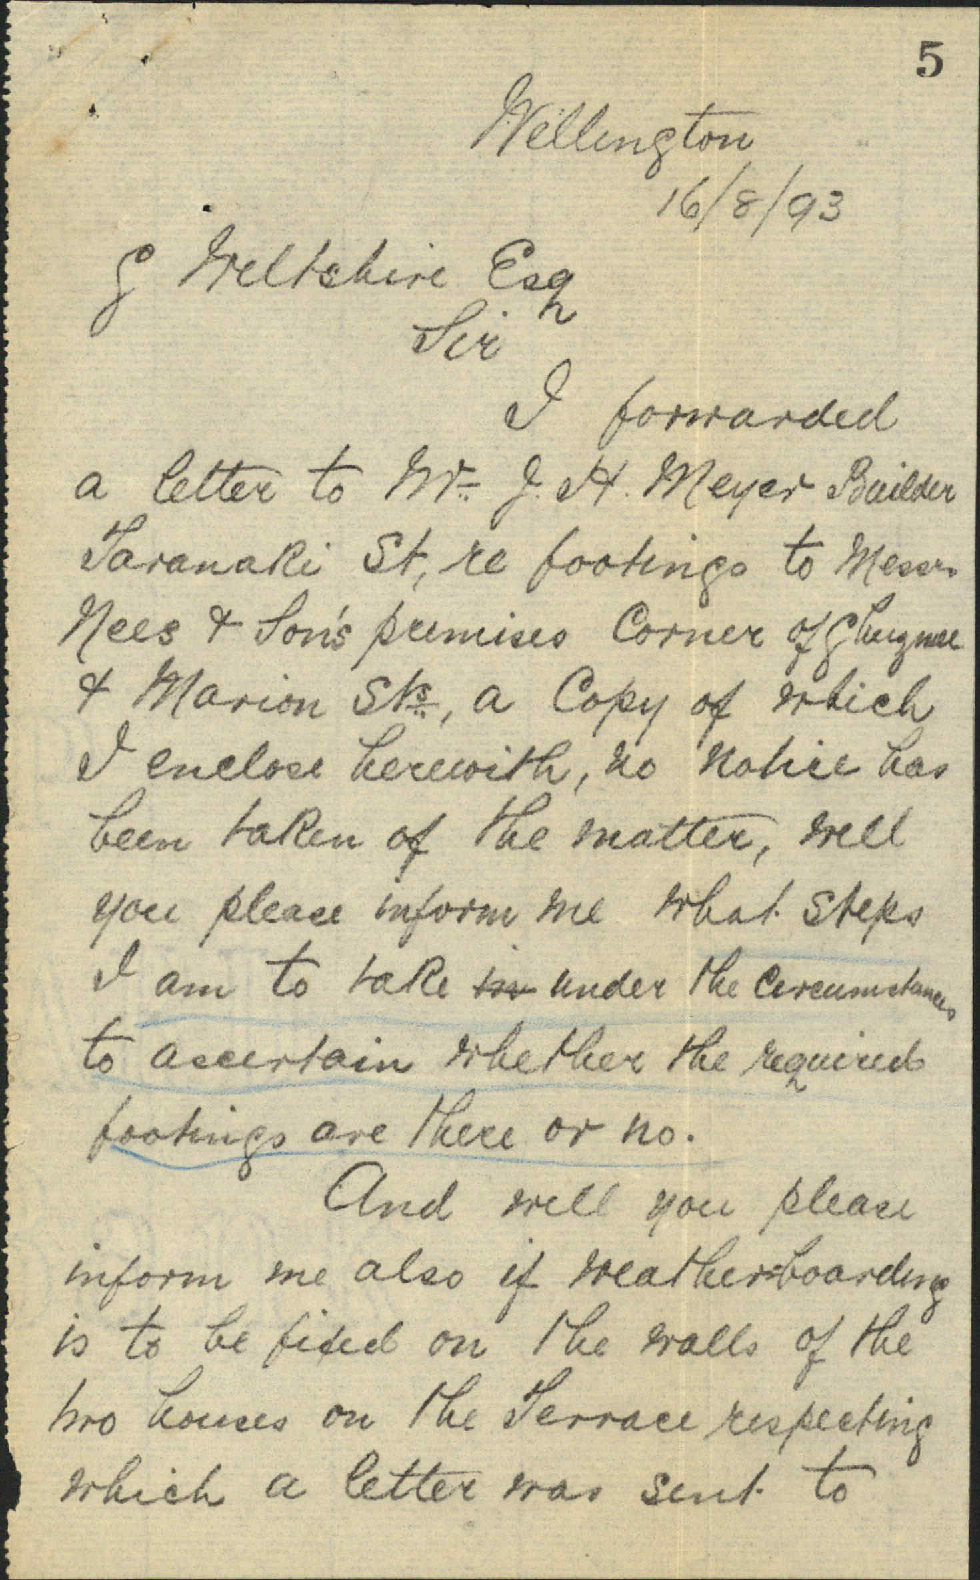 5
Wellington
16/8/93
G Wiltshire Esq
Sir
I forwarded
a letter to Mr. J. H. Meyer Builder
Taranaki St, re footings to Messrs
Nees & Son's premises Corner of Ghuznee
& Marion Sts, a Copy of which
I enclose herewith, no notice has
been taken of the matter, will
you please inform me what steps
I am to take in under the Circumstances
to ascertain whether the required
footings are there or no.
And will you please
inform me also if weatherboarding
is to be fixed on the walls of the
two houses on the Terrace respecting
which a letter was sent to